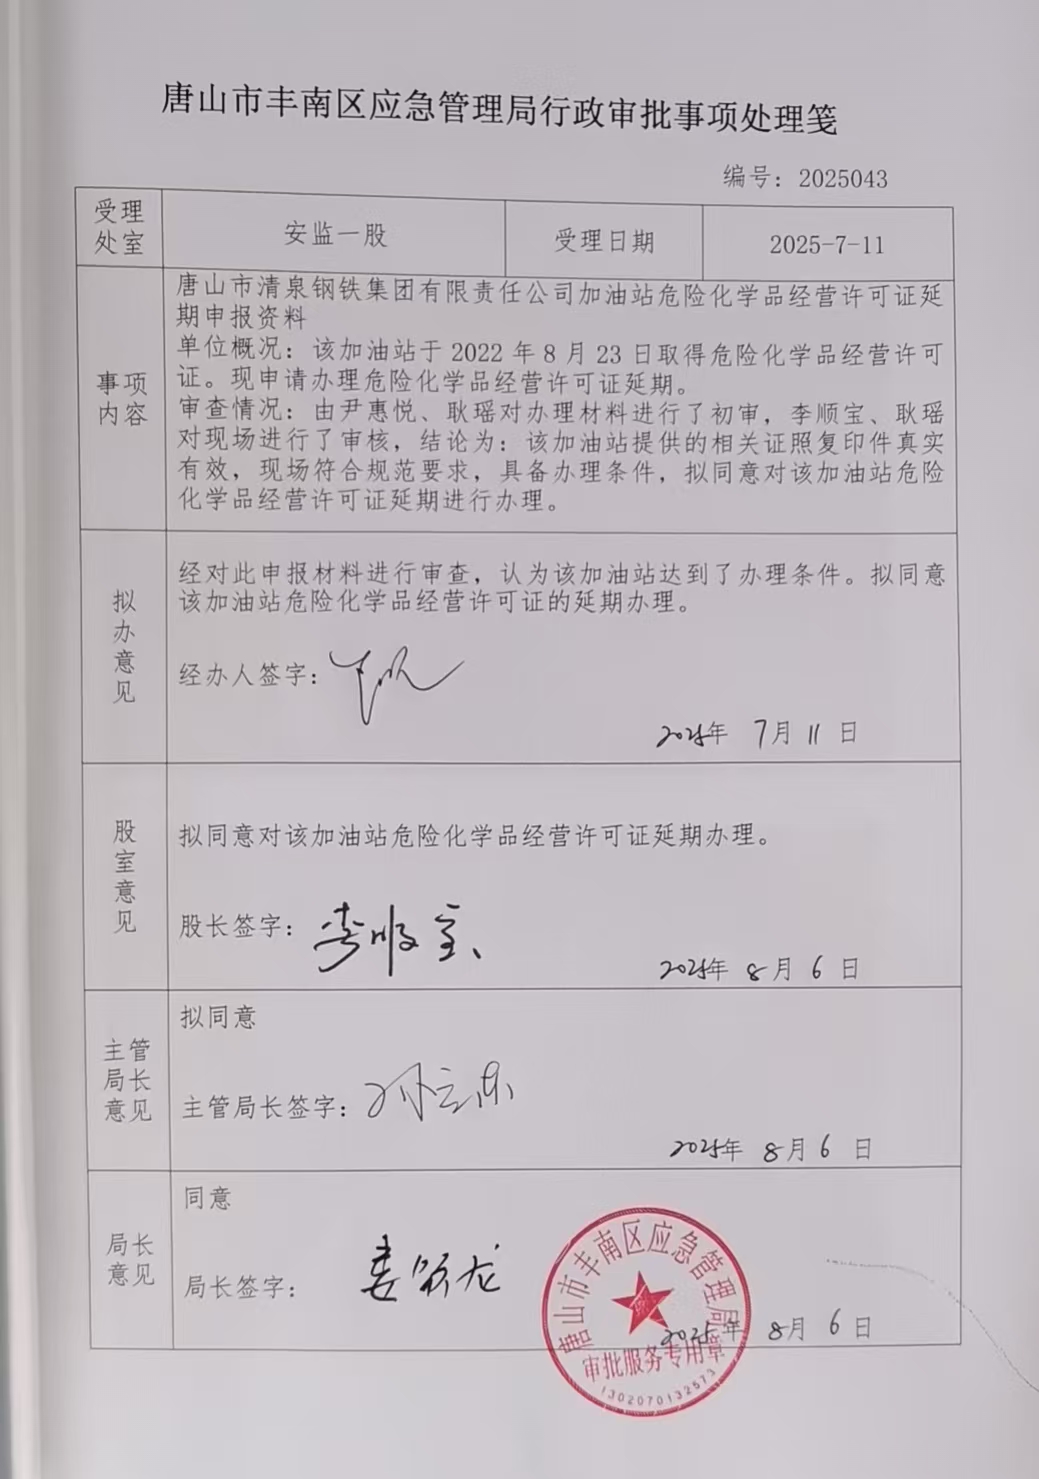 唐山市丰南区应急管理局行政审批事项处理笺
编号：2025043
受理
处室
安监一股
受理日期
2025-7-11
事项
内容
唐山市清泉钢铁集团有限责任公司加油站危险化学品经营许可证延
期申报资料
单位概况：该加油站于 2022 年 8 月 23 日取得危险化学品经营许可
证。现申请办理危险化学品经营许可证延期。
审查情况：由尹惠悦、耿瑶对办理材料进行了初审，李顺宝、耿瑶
对现场进行了审核，结论为：该加油站提供的相关证照复印件真实
有效，现场符合规范要求，具备办理条件，拟同意对该加油站危险
化学品经营许可证延期进行办理。
拟
办
意
见
经对此申报材料进行审查，认为该加油站达到了办理条件。拟同意
该加油站危险化学品经营许可证的延期办理。
经办人签字：
2025年 7月 11 日
股
室
意
见
拟同意对该加油站危险化学品经营许可证延期办理。
股长签字：李顺宝
2025年 8月 6 日
主管
局长
意见
拟同意
主管局长签字：
2025年 8月 6 日
局长
意见
同意
局长签字：
2025年 8月 6 日
唐山市丰南区应急管理局
审批服务专用章
1302070132573